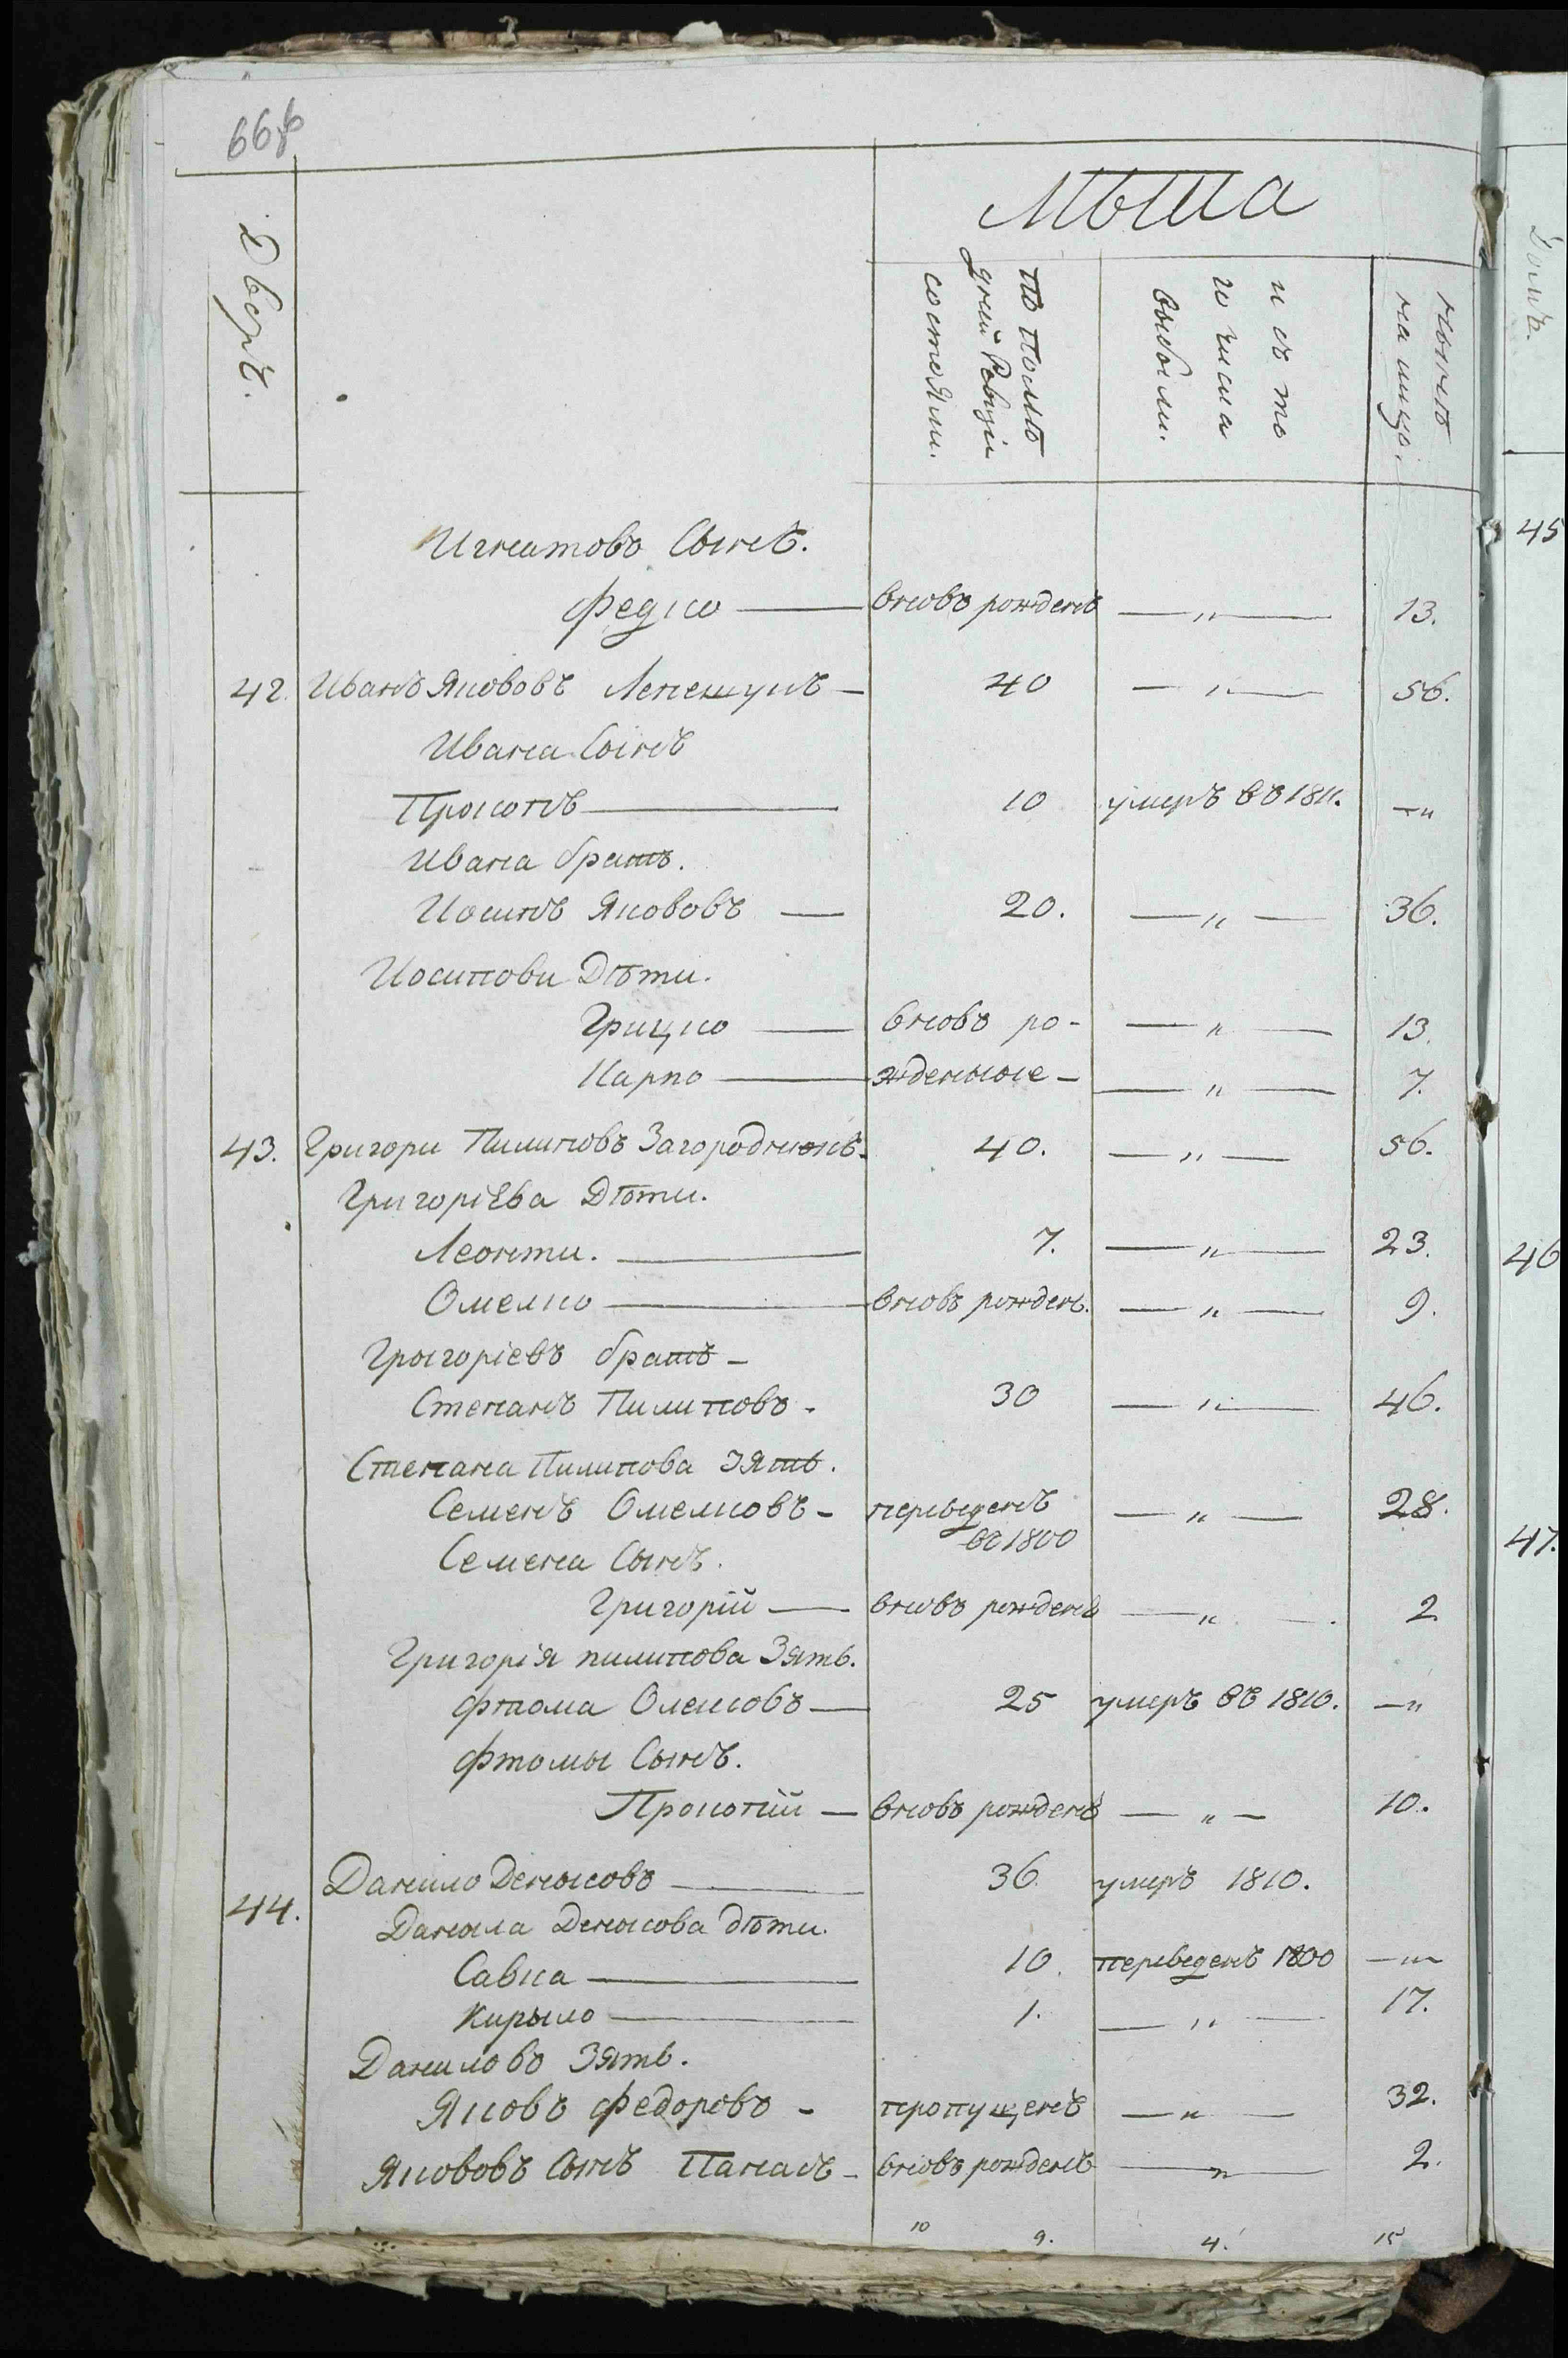 Дворъ.
Лѣта
по послѣ
дней Ревизіи
состояли.
и съ то
го числа
выбыли.
нынѣ
на лицо.
Домъ.
Игнатовъ Сынъ.
Федко — вновь рожденъ — „ — 13.
42. Иванъ Якововъ — 40 — „ — 56.
Ивана Сынъ
Прокопъ — 10 умеръ въ 1811. — „
Ивана братъ.
Иосипъ Якововъ — 20. — „ — 36.
Иосипови Дѣти.
Грицко — вновь ро- — „ — 13.
Карпо — жденные — — „ — 7.
43. Григори Пилиповъ Загороднюкъ. 40. — „ — 56.
Григоріева Дѣти.
Леонти. — 7. — „ — 23.
Омелко — вновь рожденъ. — „ — 9.
Грыгоріевъ братъ —
Степанъ Пилиповъ. 30 — „ — 46.
Степана Пилипова зять.
Семенъ Омелковъ — переведенъ — „ — 28.
въ 1800
Семена Сынъ.
Григорій — вновь рожденъ — „ — 2
Григорія пилипова Зять.
Фтома Олексовъ — 25 умеръ въ 1810. — „
Фтомы Сынъ.
Прокопій — вновь рожденъ — „ — 10.
44. Данило Денысовъ — 36 умеръ 1810.
Даныла Денысова дѣти.
Савка — 10. переведенъ 1800 — „
Кирыло — 1. — „ — 17.
Даниловъ Зять.
Яковъ Федоровъ — пропущенъ — „ — 32.
Якововъ Сынъ Панасъ — вновь рожденъ — „ — 2.
10 9. 4. 15
45
46
47.